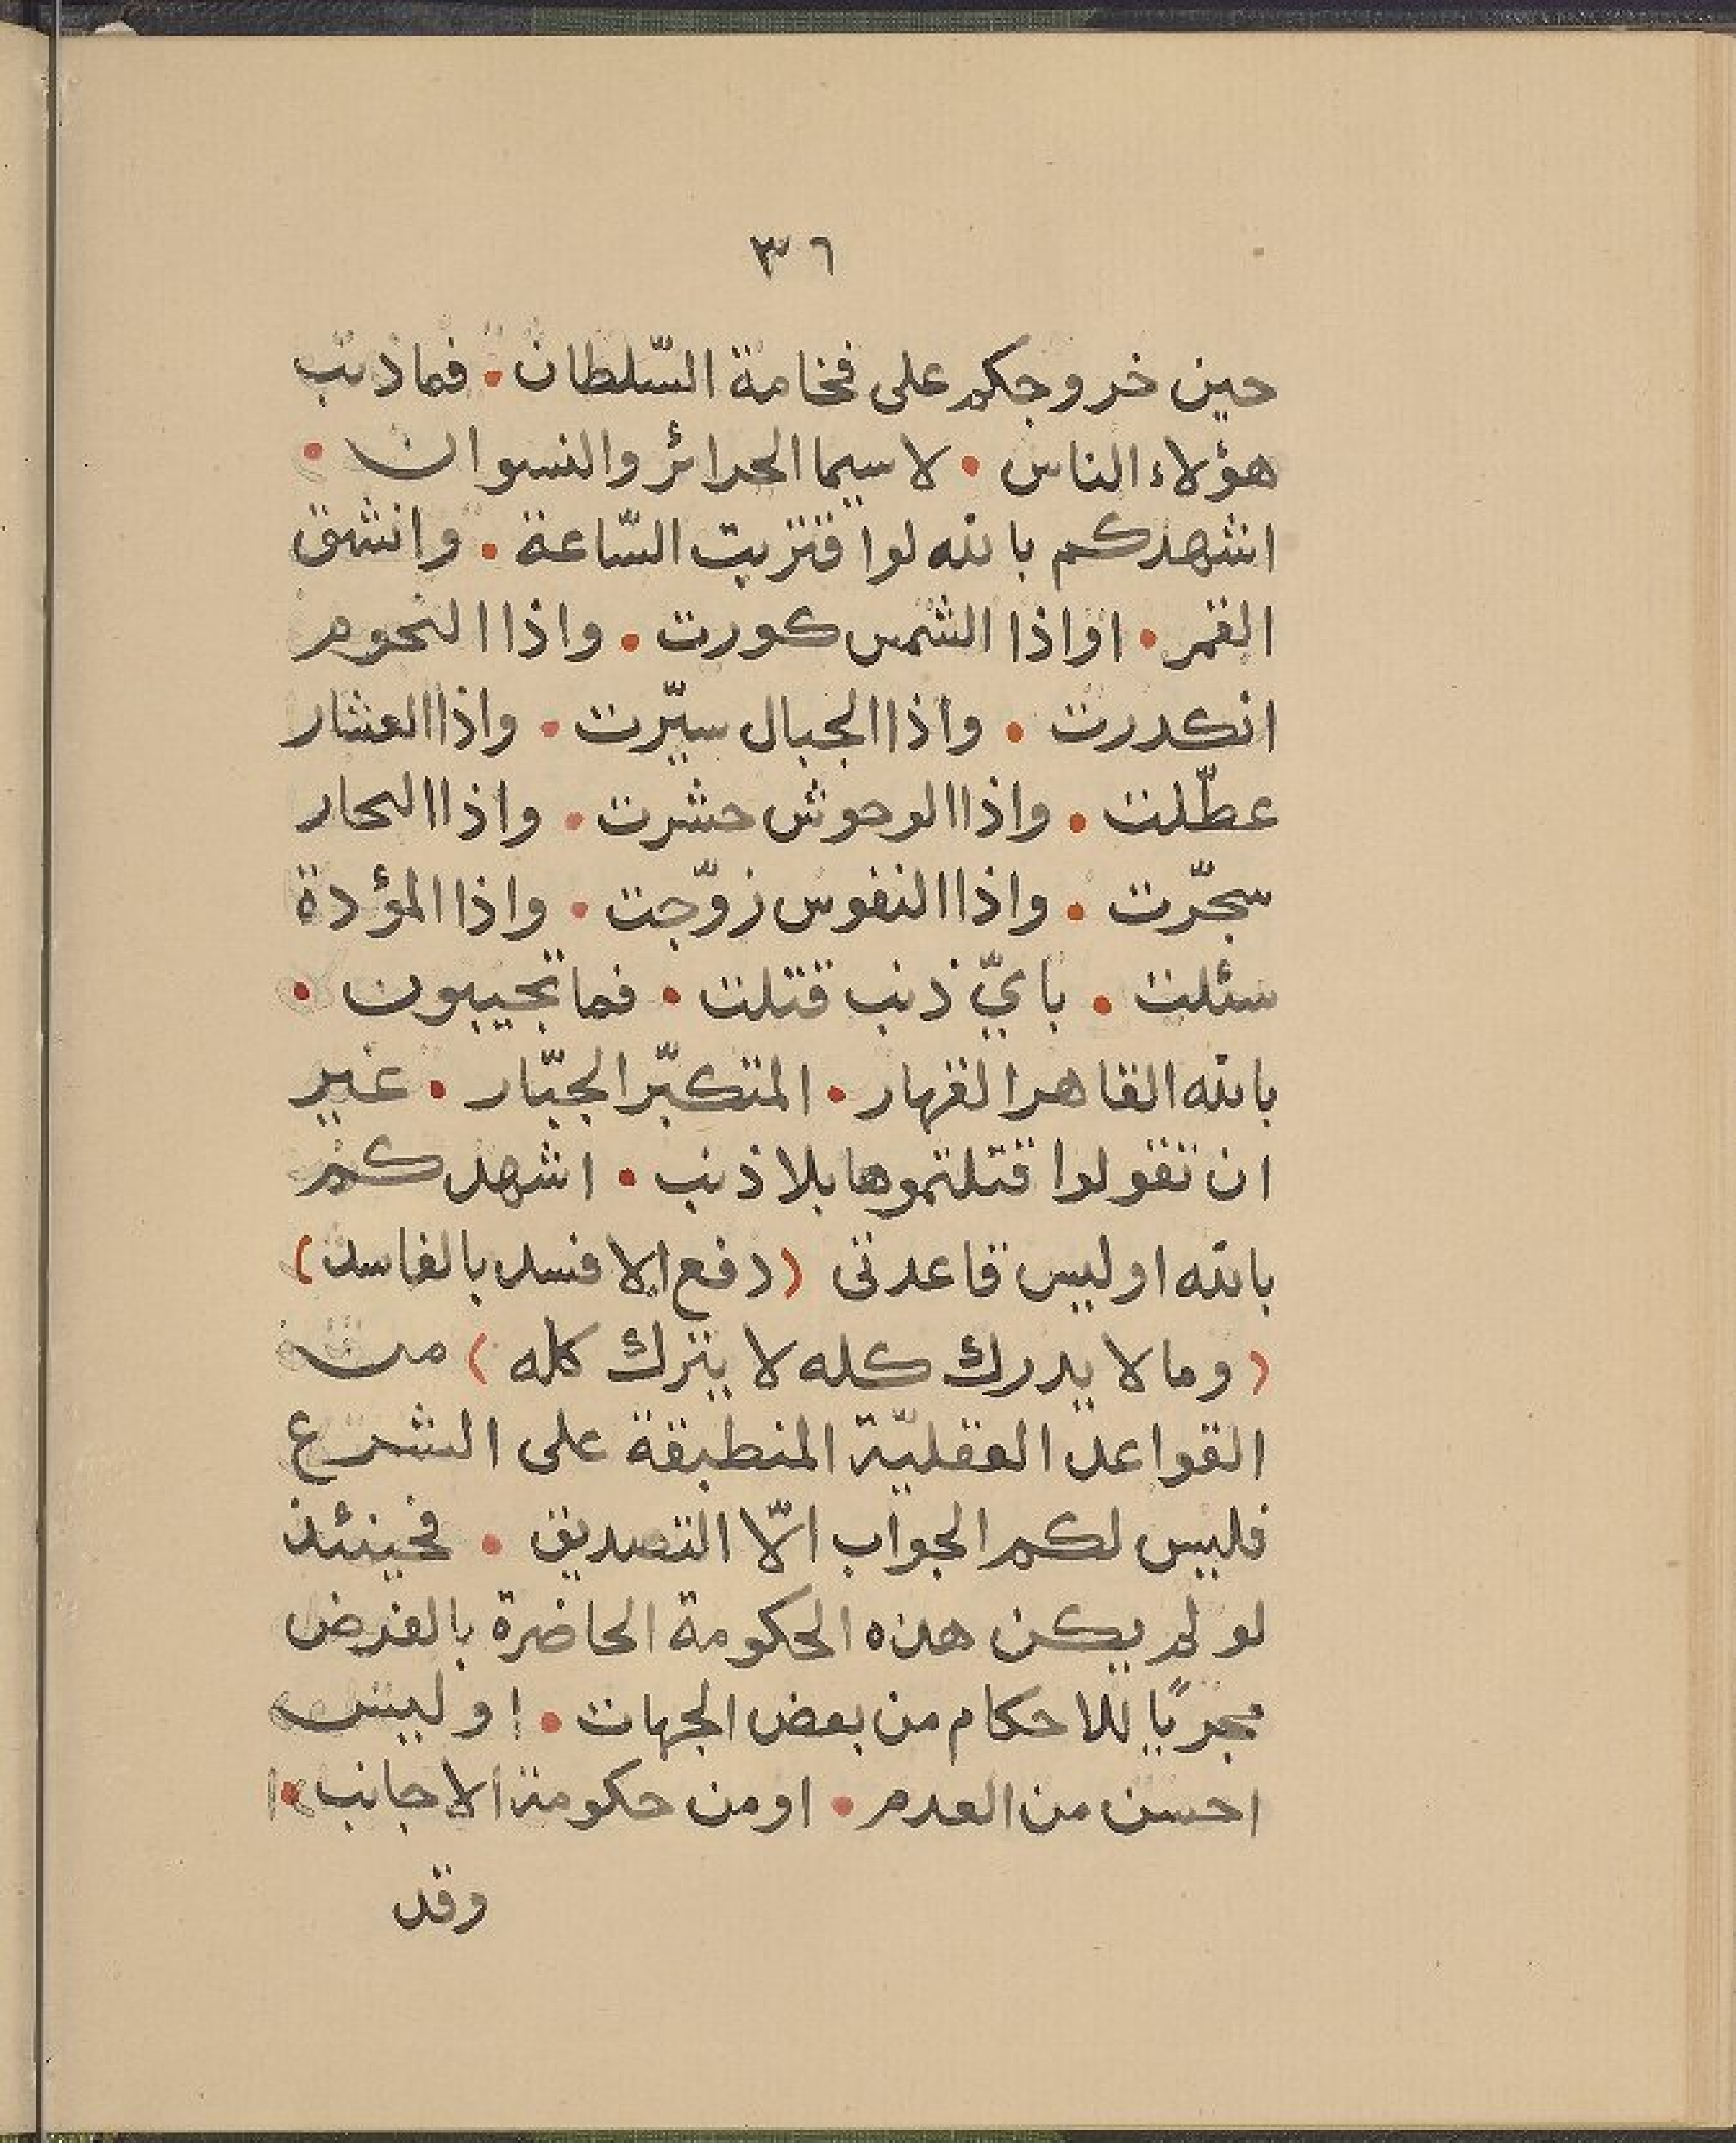 ٣٦
حين خروجكم على فخامة السّلطان • فما ذنب
هؤلاء الناس • لا سيما الحرائر والنسوان •
انشهدكم بالله لو اقتربت السّاعة • وانشق
القمر • او اذا الشمس كورت • واذا النجوم
انكدرت • واذا الجبال سيّرت • واذا العشار
عطّلت • واذا الوحوش حشرت • واذا البحار
سجّرت • واذا النفوس زوّجت • واذا المؤدة
سئلت • بايّ ذنب قتلت • فما تجيبون •
بالله القاهر القهار • المتكبّر الجبّار • غير
ان تقولوا قتلتموها بلا ذنب • اشهدكم
بالله او ليس قاعدتى (دفع الافسد بالفاسد)
(وما لا يدرك كله لا يترك كله) من
القواعد العقليّة المنطبقة على الشرع
فليس لكم الجواب الّا التصديق • فحينئذ
لو لم يكن هذه الحكومة الحاضرة بالفرض
مجريًا للاحكام من بعض الجهات • او ليس
احسن من العدم • او من حكومة الاجانب •
وقد